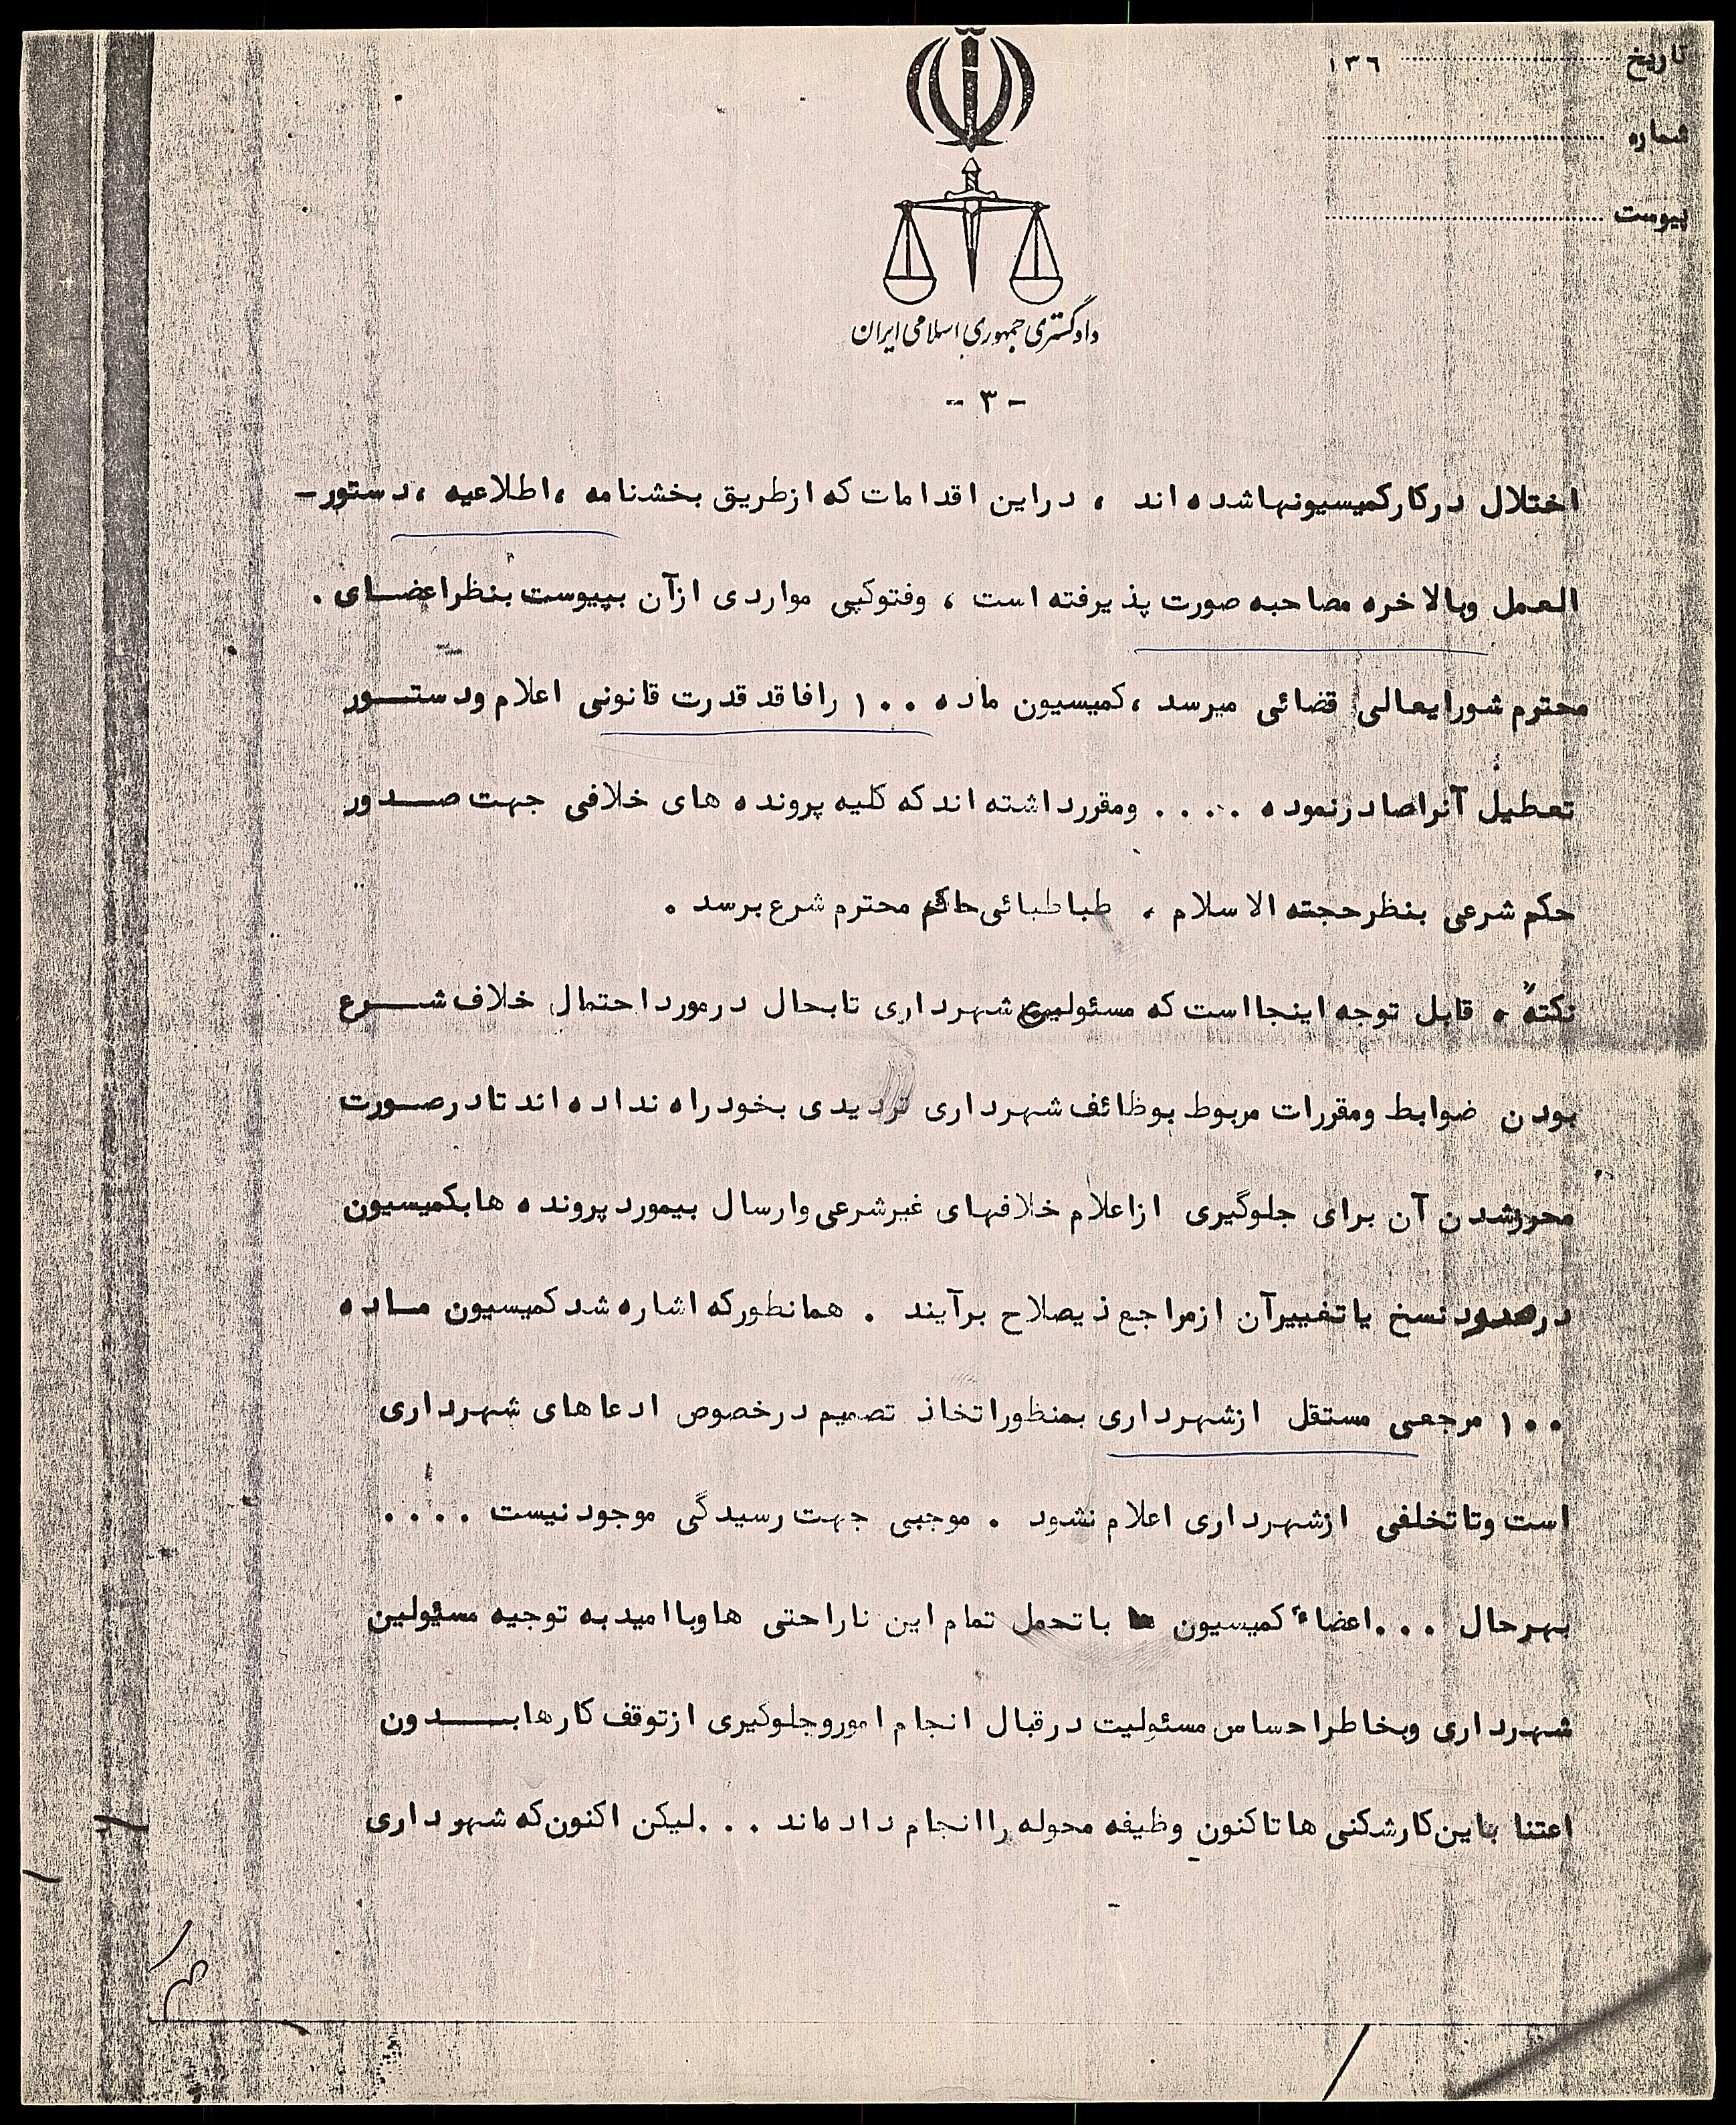 تاریخ ............ ۱۳۶
شماره ............
پیوست ............
دادگستری جمهوری اسلامی ایران
- ۳ -
اختلال در کار کمیسیونها شده اند ، در این اقدامات که از طریق بخشنامه ، اطلاعیه ، دستور -
العمل و بالاخره مصاحبه صورت پذیرفته است ، وفتوکپی مواردی از آن بپیوست بنظر اعضای .
محترم شورایعالی قضائی میرسد ، کمیسیون ماده ۱۰۰ را فاقد قدرت قانونی اعلام ودستور
تعطیل آنرا صادر نموده .... ومقرر داشته اند که کلیه پرونده های خلافی جهت صدور
حکم شرعی بنظر حجته الاسلام ، طباطبائی حاکم محترم شرع برسد .
نکتهً ه قابل توجه اینجا است که مسئولین شهرداری تابحال در مورد احتمال خلاف شرع
بودن ضوابط ومقررات مربوط بوظائف شهرداری تردیدی بخود راه نداده اند تا در صورت
محرز شدن آن برای جلوگیری از اعلام خلافهای غیر شرعی وارسال بیمورد پرونده ها بکمیسیون
در صدد نسخ یا تغییر آن از مراجع ذیصلاح برآیند . همانطور که اشاره شد کمیسیون ماده
۱۰۰ مرجعی مستقل از شهرداری بمنظور اتخاذ تصمیم در خصوص ادعاهای شهرداری
است وتا تخلفی از شهرداری اعلام نشود . موجبی جهت رسیدگی موجود نیست ....
بهر حال ... اعضاء کمیسیون با تحمل تمام این ناراحتی ها وبا امید به توجیه مسئولین
شهرداری وبخاطر احساس مسئولیت در قبال انجام امور وجلوگیری از توقف کارها بدون
اعتنا باین کارشکنی ها تاکنون وظیفه محوله را انجام داده اند ... لیکن اکنون که شهرداری